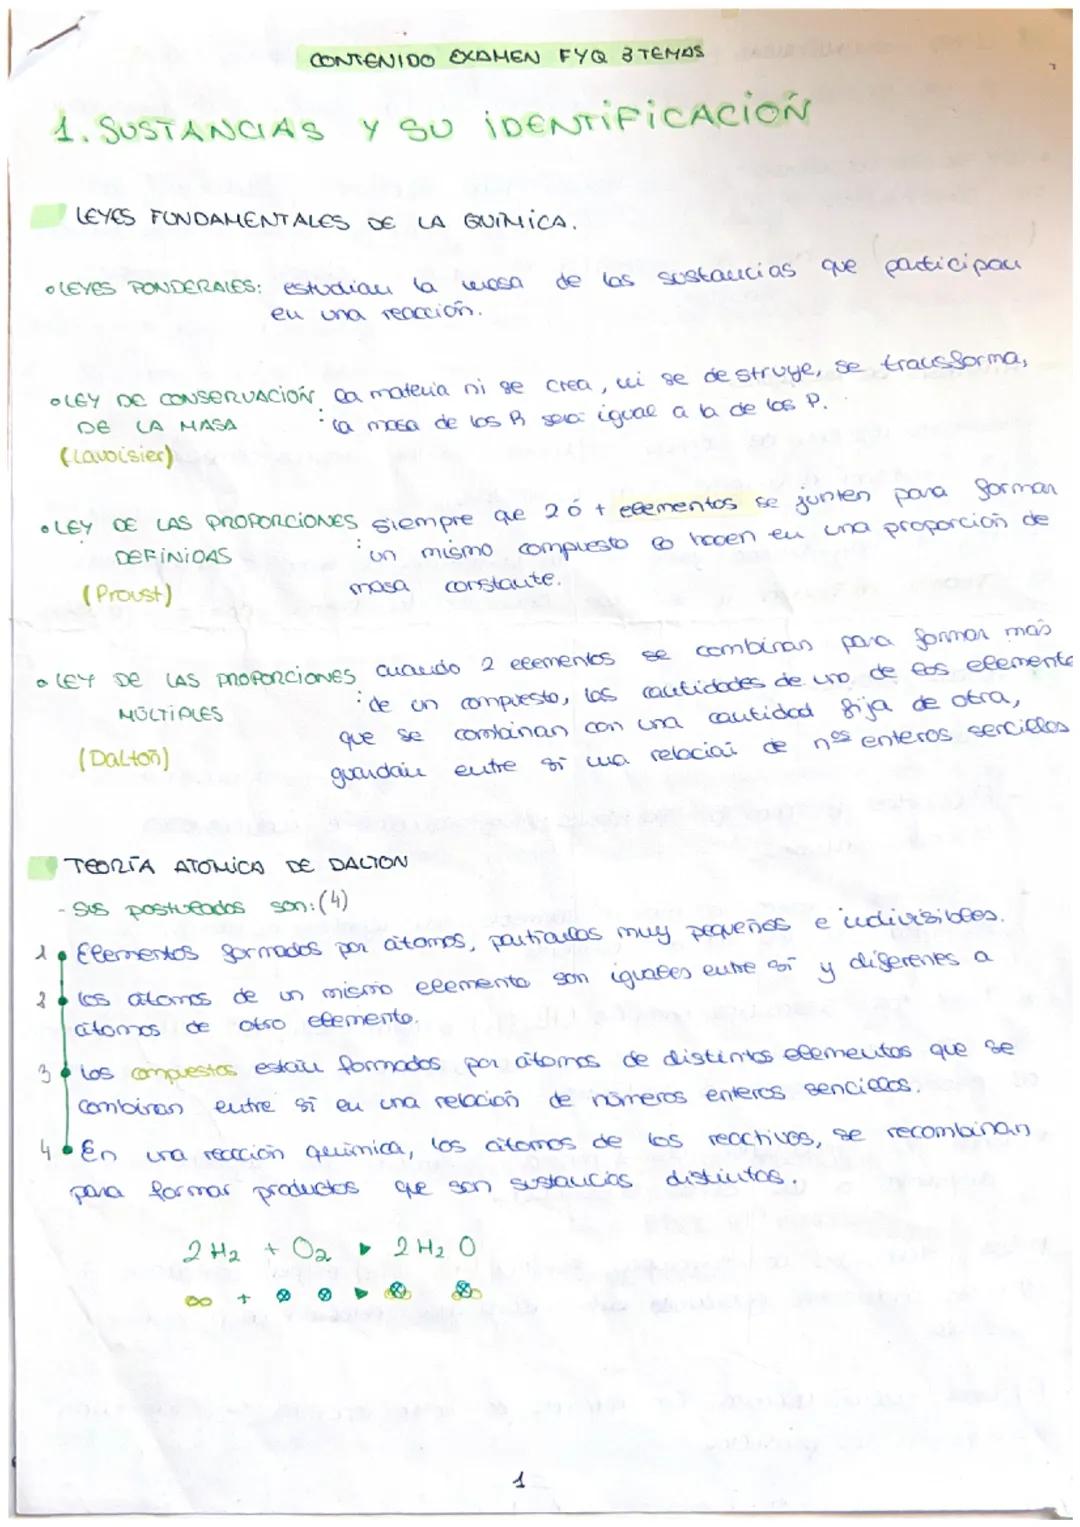 CONTENIDO EXAMEN FYQ 3 TEMAS
1. SUSTANCIAS Y SU IDENTIFICACIÓN
LEYES FUNDAMENTALES DE LA QUIMICA.
• LEYES PONDERALES: estudian la masa de las sustancias que participan
en una reacción.
• LEY DE CONSERVACIÓN La materia ni se crea, ni se destruye, se transforma,
DE LA MASA : la masa de los R será igual a la de los P.
(Lavoisier)
• LEY DE LAS PROPORCIONES siempre que 2 ó + elementos se junten para formar
DEFINIDAS : un mismo compuesto lo hacen en una proporción de
(Proust) masa constante.
• LEY DE LAS PROPORCIONES cuando 2 elementos se combinan para formar más
MÚLTIPLES : de un compuesto, las cantidades de uno de los elemento
que se combinan con una cantidad fija de otra,
(Dalton) guardan entre sí una relación de nºs enteros sencillos
TEORÍA ATOMICA DE DALTON
- Sus postulados son: (4)
1 • Elementos formados por átomos, partículas muy pequeñas e indivisibles.
2 • Los átomos de un mismo elemento son iguales entre sí y diferenes a
átomos de otro elemento.
3 • Los compuestos están formados por átomos de distintos elementos que se
combinan entre sí en una relación de números enteros sencillos.
4 • En una reacción química, los átomos de los reactivos, se recombinan
para formar productos que son sustancias distintas.
2 H₂ + O₂ ▸ 2 H₂ O
+
1